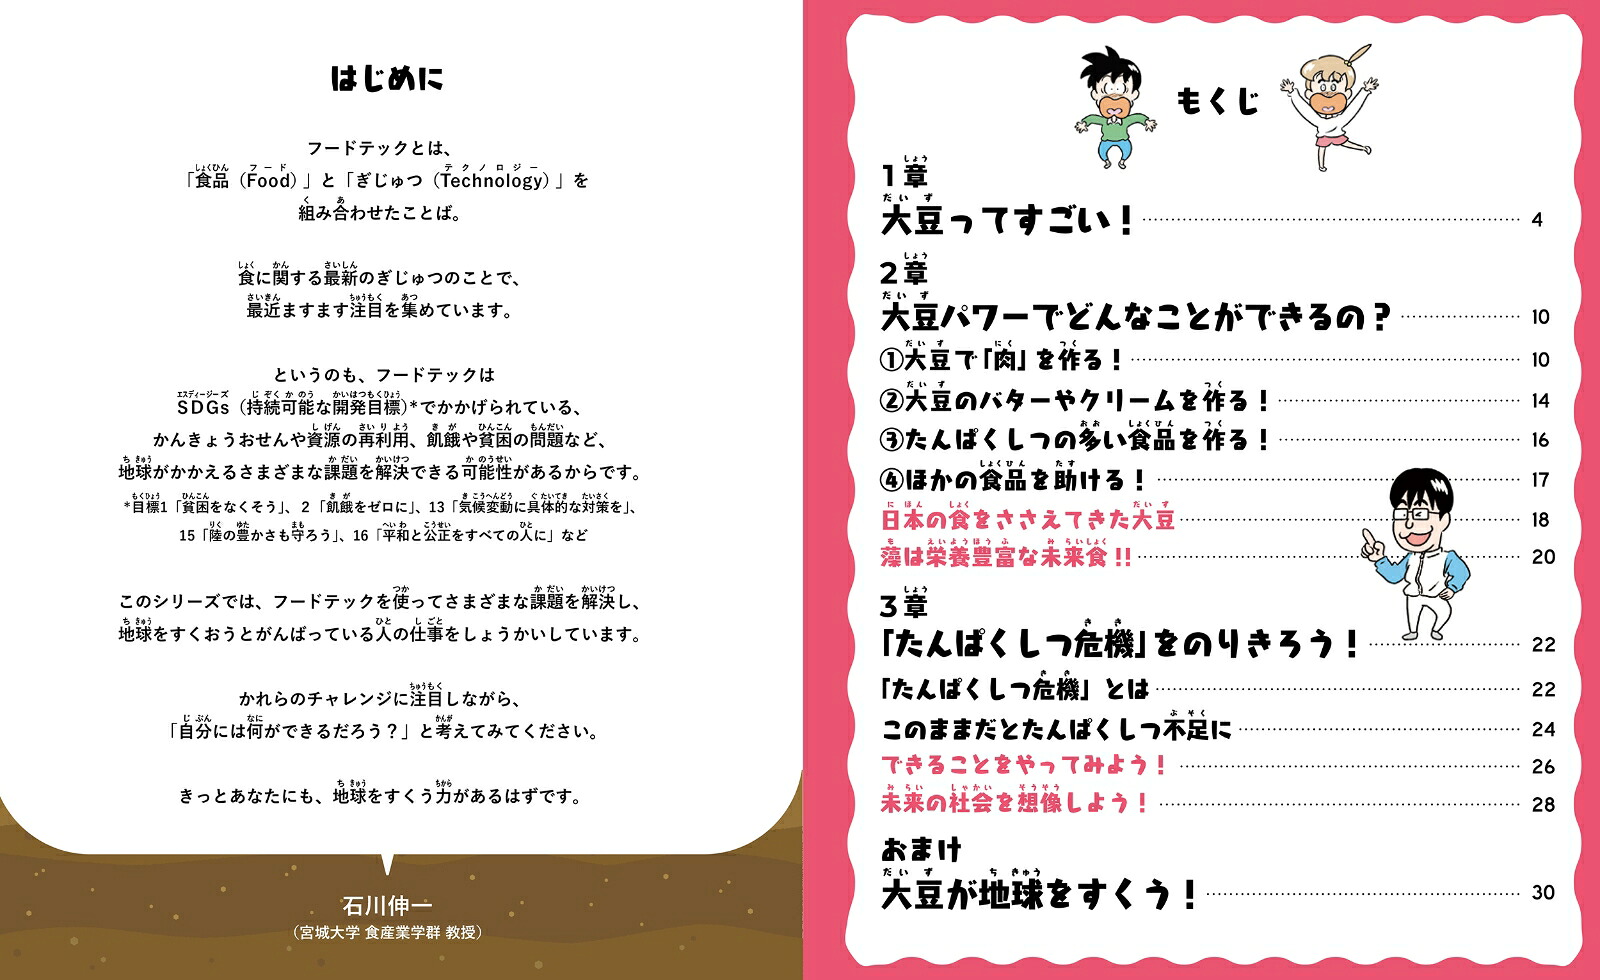 はじめに
フードテックとは、
「食品（Food）」と「ぎじゅつ（Technology）」を
組み合わせたことば。
食に関する最新のぎじゅつのことで、
最近ますます注目を集めています。
というのも、フードテックは
SDGs（持続可能な開発目標）*でかかげられている、
かんきょうおせんや資源の再利用、飢餓や貧困の問題など、
地球がかかえるさまざまな課題を解決できる可能性があるからです。
*目標1「貧困をなくそう」、2「飢餓をゼロに」、13「気候変動に具体的な対策を」、
15「陸の豊かさも守ろう」、16「平和と公正をすべての人に」など
このシリーズでは、フードテックを使ってさまざまな課題を解決し、
地球をすくおうとがんばっている人の仕事をしょうかいしています。
かれらのチャレンジに注目しながら、
「自分には何ができるだろう？」と考えてみてください。
きっとあなたにも、地球をすくう力があるはずです。
石川伸一
（宮城大学 食産業学群 教授）
もくじ
1章
大豆ってすごい！ 4
2章
大豆パワーでどんなことができるの？ 10
①大豆で「肉」を作る！ 10
②大豆のバターやクリームを作る！ 14
③たんぱくしつの多い食品を作る！ 16
④ほかの食品を助ける！ 17
日本の食をささえてきた大豆 18
藻は栄養豊富な未来食!! 20
3章
「たんぱくしつ危機」をのりきろう！ 22
「たんぱくしつ危機」とは 22
このままだとたんぱくしつ不足に 24
できることをやってみよう！ 26
未来の社会を想像しよう！ 28
おまけ
大豆が地球をすくう！ 30